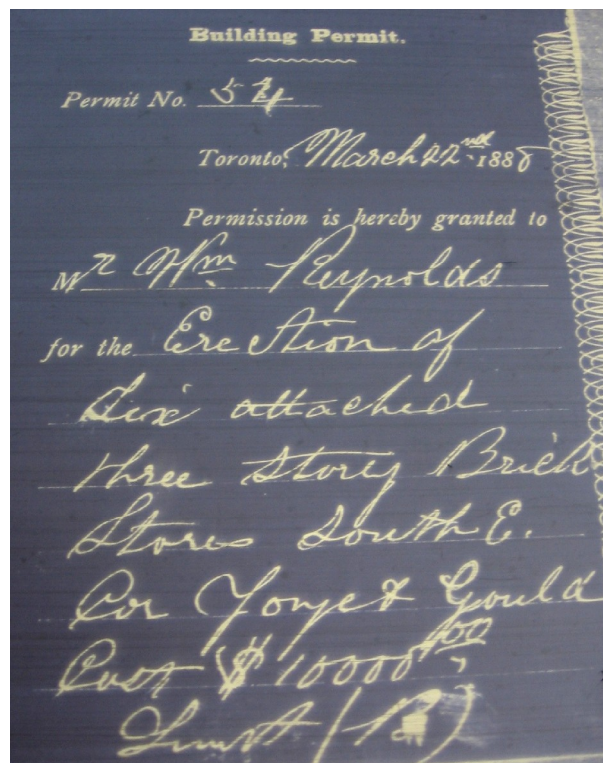 Building Permit.
Permit No. 54
Toronto, March 22nd 1888
Permission is hereby granted to
Mr Wm Reynolds
for the Erection of
Six attached
three Story Brick
Stores South E.
Cor Yonge & Gould
Cost $ 10000 00
Limit (B)